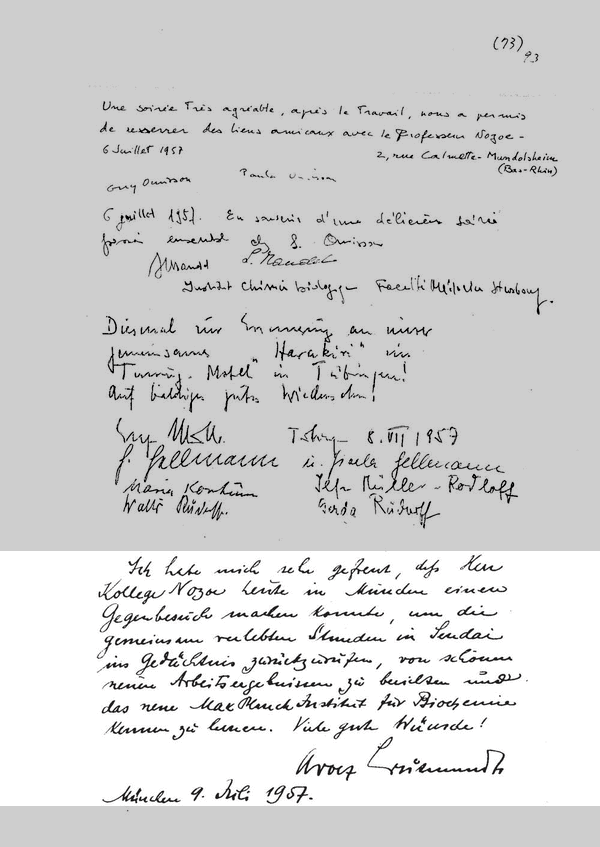 (73)
93
Une soirée très agréable, après le Travail, nous a permis
de resserrer des liens amicaux avec le Professeur Nozoe -
6 Juillet 1957
2, rue Calmette - Mundolsheim
(Bas-Rhin)
Guy Ourisson Paula Ourisson
6 juillet 1957. En souvenir d'une délicieuse soirée
passée ensemble chez G. Ourisson
P. Mandel
Institut Chimie biologique Faculté Médecine Strasbourg.
Diesmal zur Erinnerung an unser
gemeinsames "Harakiri" im
Touring-Motel in Tübingen!
Auf baldiges gutes Wiedersehen!
8. VII 1957
G. Hellmann u. Gisela Hellmann
Maria Ilse Müller-Rodloff
Walter Rüdorff. Gerda Rüdorff
Ich habe mich sehr gefreut, daß Herr
Kollege Nozoe heute in München einen
Gegenbesuch machen konnte, um die
gemeinsam verlebten Stunden in Sendai
ins Gedächtnis zurückzurufen, von schönen
neuen Arbeitsergebnissen zu berichten und
das neue Max Planck Institut für Biochemie
kennen zu lernen. Viele gute Wünsche!
Adolf Butenandt
München 9. Juli 1957.